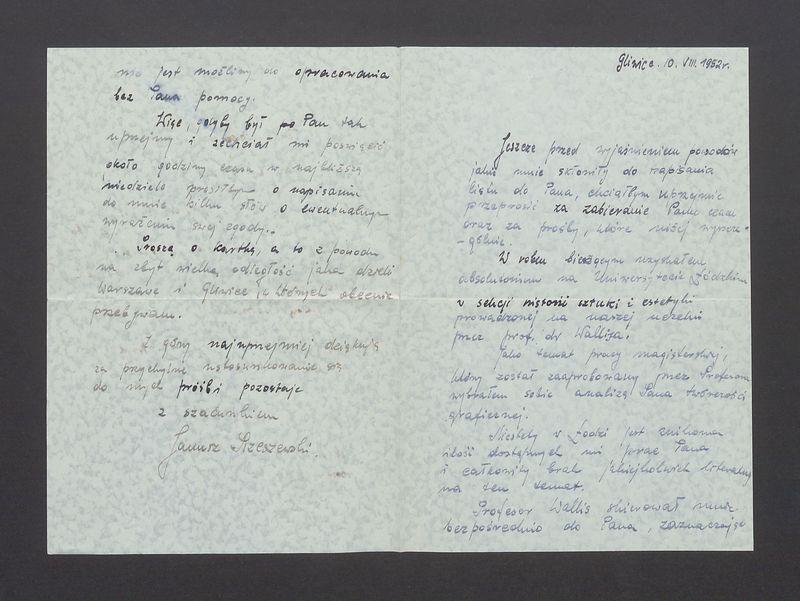 Gliwice. 10. VIII. 1952r.
Jeszcze przed wyjaśnieniem powodów
jakie mnie skłoniły do napisania
listu do Pana, chciałbym uprzejmie
przeprosić za zabieranie Panu czasu
oraz za prośby, które niżej wyszcze-
-gólnię.
W roku bieżącym uzyskałem
absolutorium na Uniwersytecie Łódzkim
w sekcji historii sztuki i estetyki
prowadzonej na naszej uczelni
przez prof. dr Wallisa.
Jako temat pracy magisterskiej,
który został zaaprobowany przez Profesora
wybrałem sobie analizę Pana twórczości
graficznej.
Niestety w Łodzi jest znikoma
ilość dostępnych mi prac Pana
i całkowity brak jakiejkolwiek literatury
na ten temat.
Profesor Wallis skierował mnie
bezpośrednio do Pana, zaznaczając
jest możliwy do opracowania
bez Pana pomocy.
Więc, gdyby był Pan tak
uprzejmy i zechciał mi poświęcić
około godziny czasu w najbliższą
niedzielę prosiłbym o napisanie
do mnie kilku słów o ewentualnym
wyrażeniu swej zgody.
Proszę o kartkę, a to z powodu
na zbyt wielką odległość jaka dzieli
Warszawę i Gliwice w których obecnie
przebywam.
Z góry najuprzejmiej dziękuję
za przychylne ustosunkowanie się
do mych próśb i pozostaję
z szacunkiem
Janusz